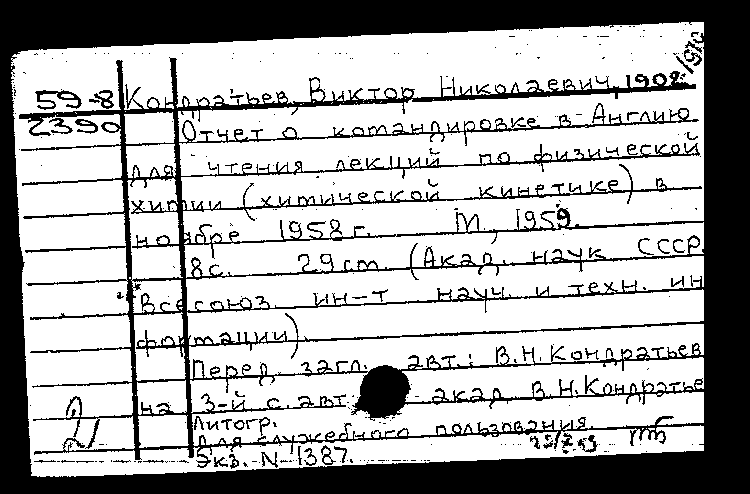 59-8 Кондратьев, Виктор Николаевич, 1902-
2390 Отчет о командировке в Англию
для чтения лекций по физической
химии (химической кинетике) в
ноябре 1958 г. М., 1959.
8с. 29 cm. (Акад. наук СССР.
Всесоюз. ин-т науч. и техн. ин
формации).
Перед загл. авт.: В.Н. Кондратьев
на 3-й с. авт. акад. В.Н. Кондратье
Литогр.
Для служебного пользования.
Экз. N 1387.
2